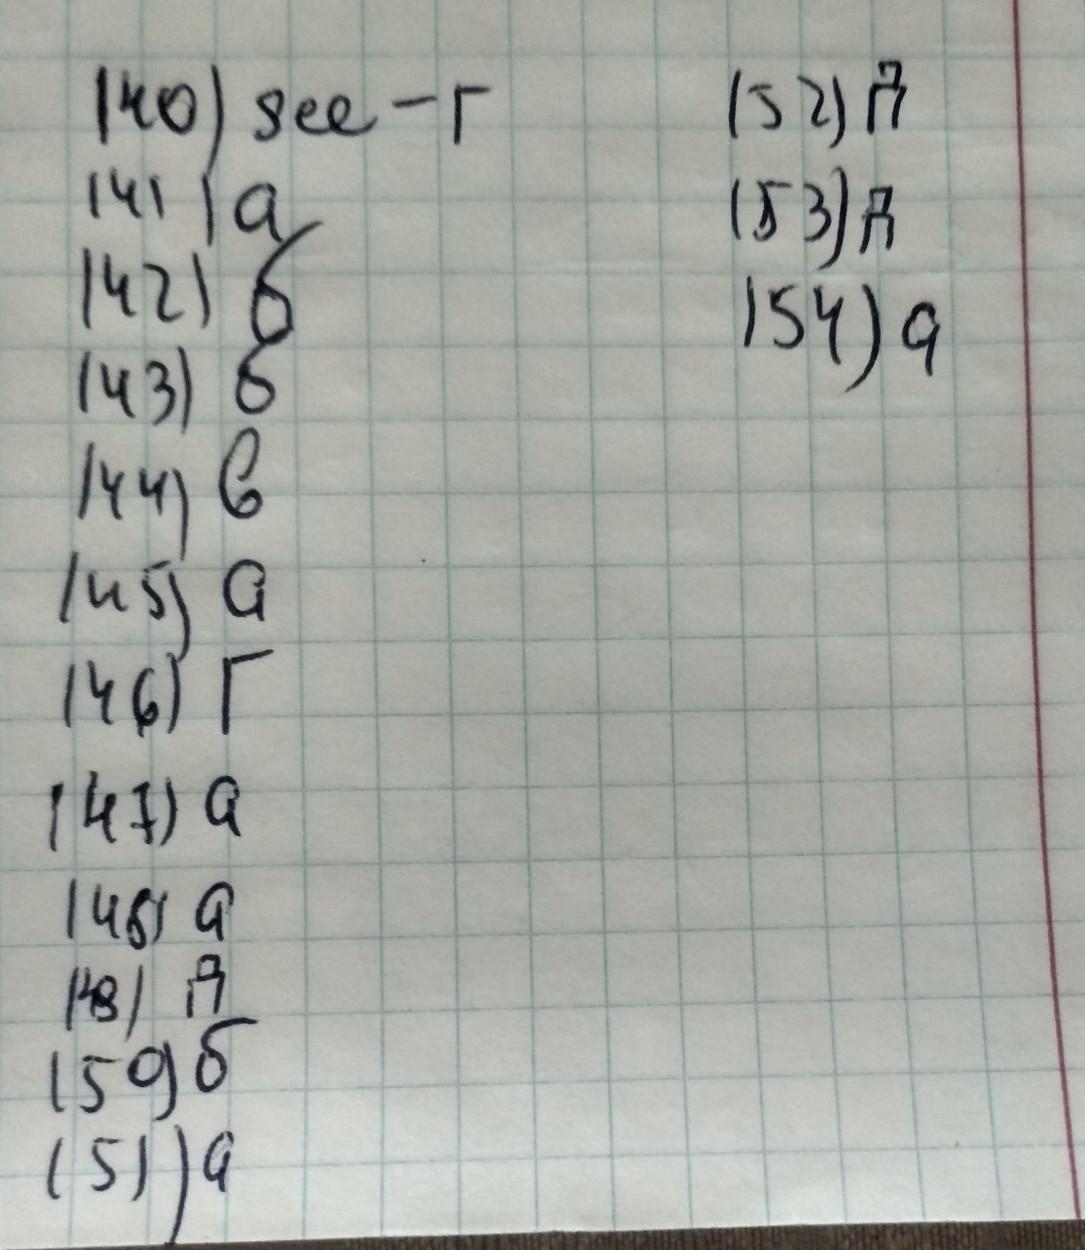 140) see - г
141) а
142) б
143) б
144) в
145) а
146) Г
147) а
148) а
149) Д
150) б
151) а
152) Д
153) Д
154) а